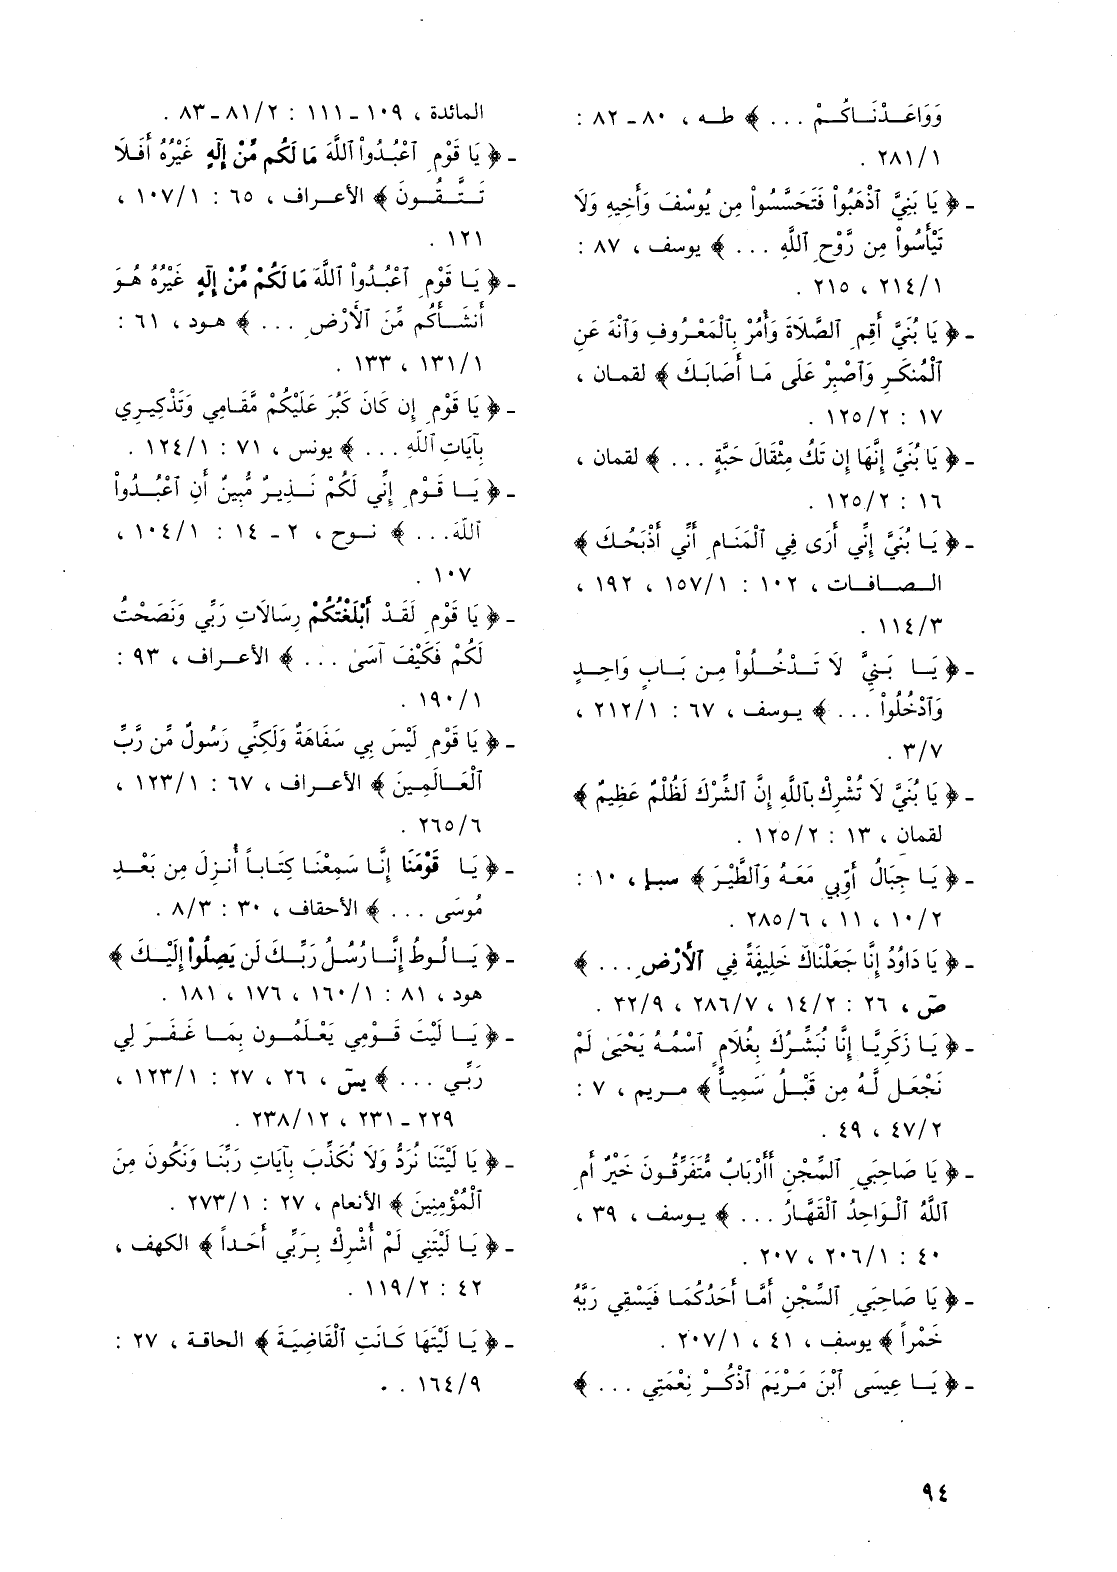 وَوَاعَـدْنَـاكُـمْ ... ﴾ طـه ، ٨٠ ـ ٨٢ :
٢٨١/١ .
ـ ﴿ يَا بَنِيَّ ٱذْهَبُواْ فَتَحَسَّسُواْ مِن يُوسُفَ وَأَخِيهِ وَلَا
تَيْأَسُواْ مِن رَّوْحِ ٱللَّهِ ... ﴾ يوسف ، ٨٧ :
٢١٤/١ ، ٢١٥ .
ـ ﴿ يَا بُنَيَّ أَقِمِ ٱلصَّلَاةَ وَأْمُرْ بِٱلْمَعْرُوفِ وَٱنْهَ عَنِ
ٱلْمُنكَرِ وَٱصْبِرْ عَلَى مَا أَصَابَكَ ﴾ لقمان ،
١٧ : ١٢٥/٢ .
ـ ﴿ يَا بُنَيَّ إِنَّهَا إِن تَكُ مِثْقَالَ حَبَّةٍ ... ﴾ لقمان ،
١٦ : ١٢٥/٢ .
ـ ﴿ يَـا بُنَيَّ إِنِّي أَرَى فِي ٱلْمَنَـامِ أَنِّي أَذْبَحُـكَ ﴾
الـصـافـات ، ١٠٢ : ١٥٧/١ ، ١٩٢ ،
١١٤/٣ .
ـ ﴿ يَـا بَنِيَّ لَا تَـدْخُـلُواْ مِن بَـابٍ وَاحِـدٍ
وَٱدْخُلُواْ ... ﴾ يـوسف ، ٦٧ : ٢١٢/١ ،
٣/٧ .
ـ ﴿ يَا بُنَيَّ لَا تُشْرِكْ بِٱللَّهِ إِنَّ ٱلشِّرْكَ لَظُلْمٌ عَظِيمٌ ﴾
لقمان ، ١٣ : ١٢٥/٢ .
ـ ﴿ يَـا جِبَالُ أَوِّبِي مَعَـهُ وَٱلطَّيْرَ ﴾ سبـإ ، ١٠ :
١٠/٢ ، ١١ ، ٢٨٥/٦ .
ـ ﴿ يَا دَاوُدُ إِنَّا جَعَلْنَاكَ خَلِيفَةً فِي ٱلْأَرْضِ ... ﴾
صۤ ، ٢٦ : ١٤/٢ ، ٢٨٦/٧ ، ٢٢/٩ .
ـ ﴿ يَـا زَكَرِيَّـا إِنَّا نُبَشِّـرُكَ بِغُلَامٍ ٱسْمُـهُ يَحْيَىٰ لَمْ
نَجْعَـل لَّـهُ مِن قَبْـلُ سَمِيـاً ﴾ مـريم ، ٧ :
٤٧/٢ ، ٤٩ .
ـ ﴿ يَا صَاحِبَيِ ٱلسِّجْنِ أَأَرْبَابٌ مُّتَفَرِّقُـونَ خَيْرٌ أَمِ
ٱللَّهُ ٱلْـوَاحِدُ ٱلْقَهَّـارُ ... ﴾ يـوسف ، ٣٩ ،
٤٠ : ٢٠٦/١ ، ٢٠٧ .
ـ ﴿ يَا صَاحِبَيِ ٱلسِّجْنِ أَمَّا أَحَدُكُمَا فَيَسْقِي رَبَّهُ
خَمْراً ﴾ يوسف ، ٤١ ، ٢٠٧/١ .
ـ ﴿ يَـا عِيسَى ٱبْنَ مَـرْيَمَ ٱذْكُـرْ نِعْمَتِي ... ﴾
المائدة ، ١٠٩ ـ ١١١ : ٨١/٢ ـ ٨٣ .
ـ ﴿ يَا قَوْمِ ٱعْبُدُواْ ٱللَّهَ مَا لَكُم مِّنْ إِلَٰهٍ غَيْرُهُ أَفَـلَا
تَـتَّـقُـونَ ﴾ الأعـراف ، ٦٥ : ١٠٧/١ ،
١٢١ .
ـ ﴿ يَـا قَوْمِ ٱعْبُـدُواْ ٱللَّهَ مَا لَكُمْ مِّنْ إِلَٰهٍ غَيْرُهُ هُـوَ
أَنشَـأَكُم مِّنَ ٱلْأَرْضِ ... ﴾ هـود ، ٦١ :
١٣١/١ ، ١٣٣ .
ـ ﴿ يَا قَوْمِ إِن كَانَ كَبُرَ عَلَيْكُمْ مَّقَـامِي وَتَذْكِيـرِي
بِآيَاتِ ٱللَّهِ ... ﴾ يونس ، ٧١ : ١٢٤/١ .
ـ ﴿ يَـا قَـوْمِ إِنِّي لَكُمْ نَـذِيـرٌ مُّبِينٌ أَنِ ٱعْبُـدُواْ
ٱللَّهَ... ﴾ نـوح ، ٢ ـ ١٤ : ١٠٤/١ ،
١٠٧ .
ـ ﴿ يَا قَوْمِ لَقَـدْ أَبْلَغْتُكُمْ رِسَالَاتِ رَبِّي وَنَصَحْتُ
لَكُمْ فَكَيْفَ آسَىٰ ... ﴾ الأعـراف ، ٩٣ :
١٩٠/١ .
ـ ﴿ يَا قَوْمِ لَيْسَ بِي سَفَاهَةٌ وَلَكِنِّي رَسُولٌ مِّن رَّبِّ
ٱلْعَـالَمِـينَ ﴾ الأعـراف ، ٦٧ : ١٢٣/١ ،
٢٦٥/٦ .
ـ ﴿ يَـا قَوْمَنَا إِنَّـا سَمِعْنَـا كِتَـابـاً أُنـزِلَ مِن بَعْـدِ
مُوسَى ... ﴾ الأحقاف ، ٣٠ : ٨/٣ .
ـ ﴿ يَـا لُـوطُ إِنَّـا رُسُـلُ رَبِّـكَ لَن يَصِلُواْ إِلَيْـكَ ﴾
هود ، ٨١ : ١٦٠/١ ، ١٧٦ ، ١٨١ .
ـ ﴿ يَـا لَيْتَ قَـوْمِي يَعْـلَمُـون بِمَـا غَـفَـرَ لِي
رَبِّـي ... ﴾ يسۤ ، ٢٦ ، ٢٧ : ١٢٣/١ ،
٢٢٩ ـ ٢٣١ ، ٢٣٨/١٢ .
ـ ﴿ يَا لَيْتَنَا نُرَدُّ وَلَا نُكَذِّبَ بِآيَاتِ رَبِّنَـا وَنَكُونَ مِنَ
ٱلْمُؤْمِنِينَ ﴾ الأنعام ، ٢٧ : ٢٧٣/١ .
ـ ﴿ يَـا لَيْتَنِي لَمْ أُشْرِكْ بِـرَبِّي أَحَـداً ﴾ الكهف ،
٤٢ : ١١٩/٢ .
ـ ﴿ يَـا لَيْتَهَا كَـانَتِ ٱلْقَاضِيَـةَ ﴾ الحاقـة ، ٢٧ :
١٦٤/٩ . .
٩٤